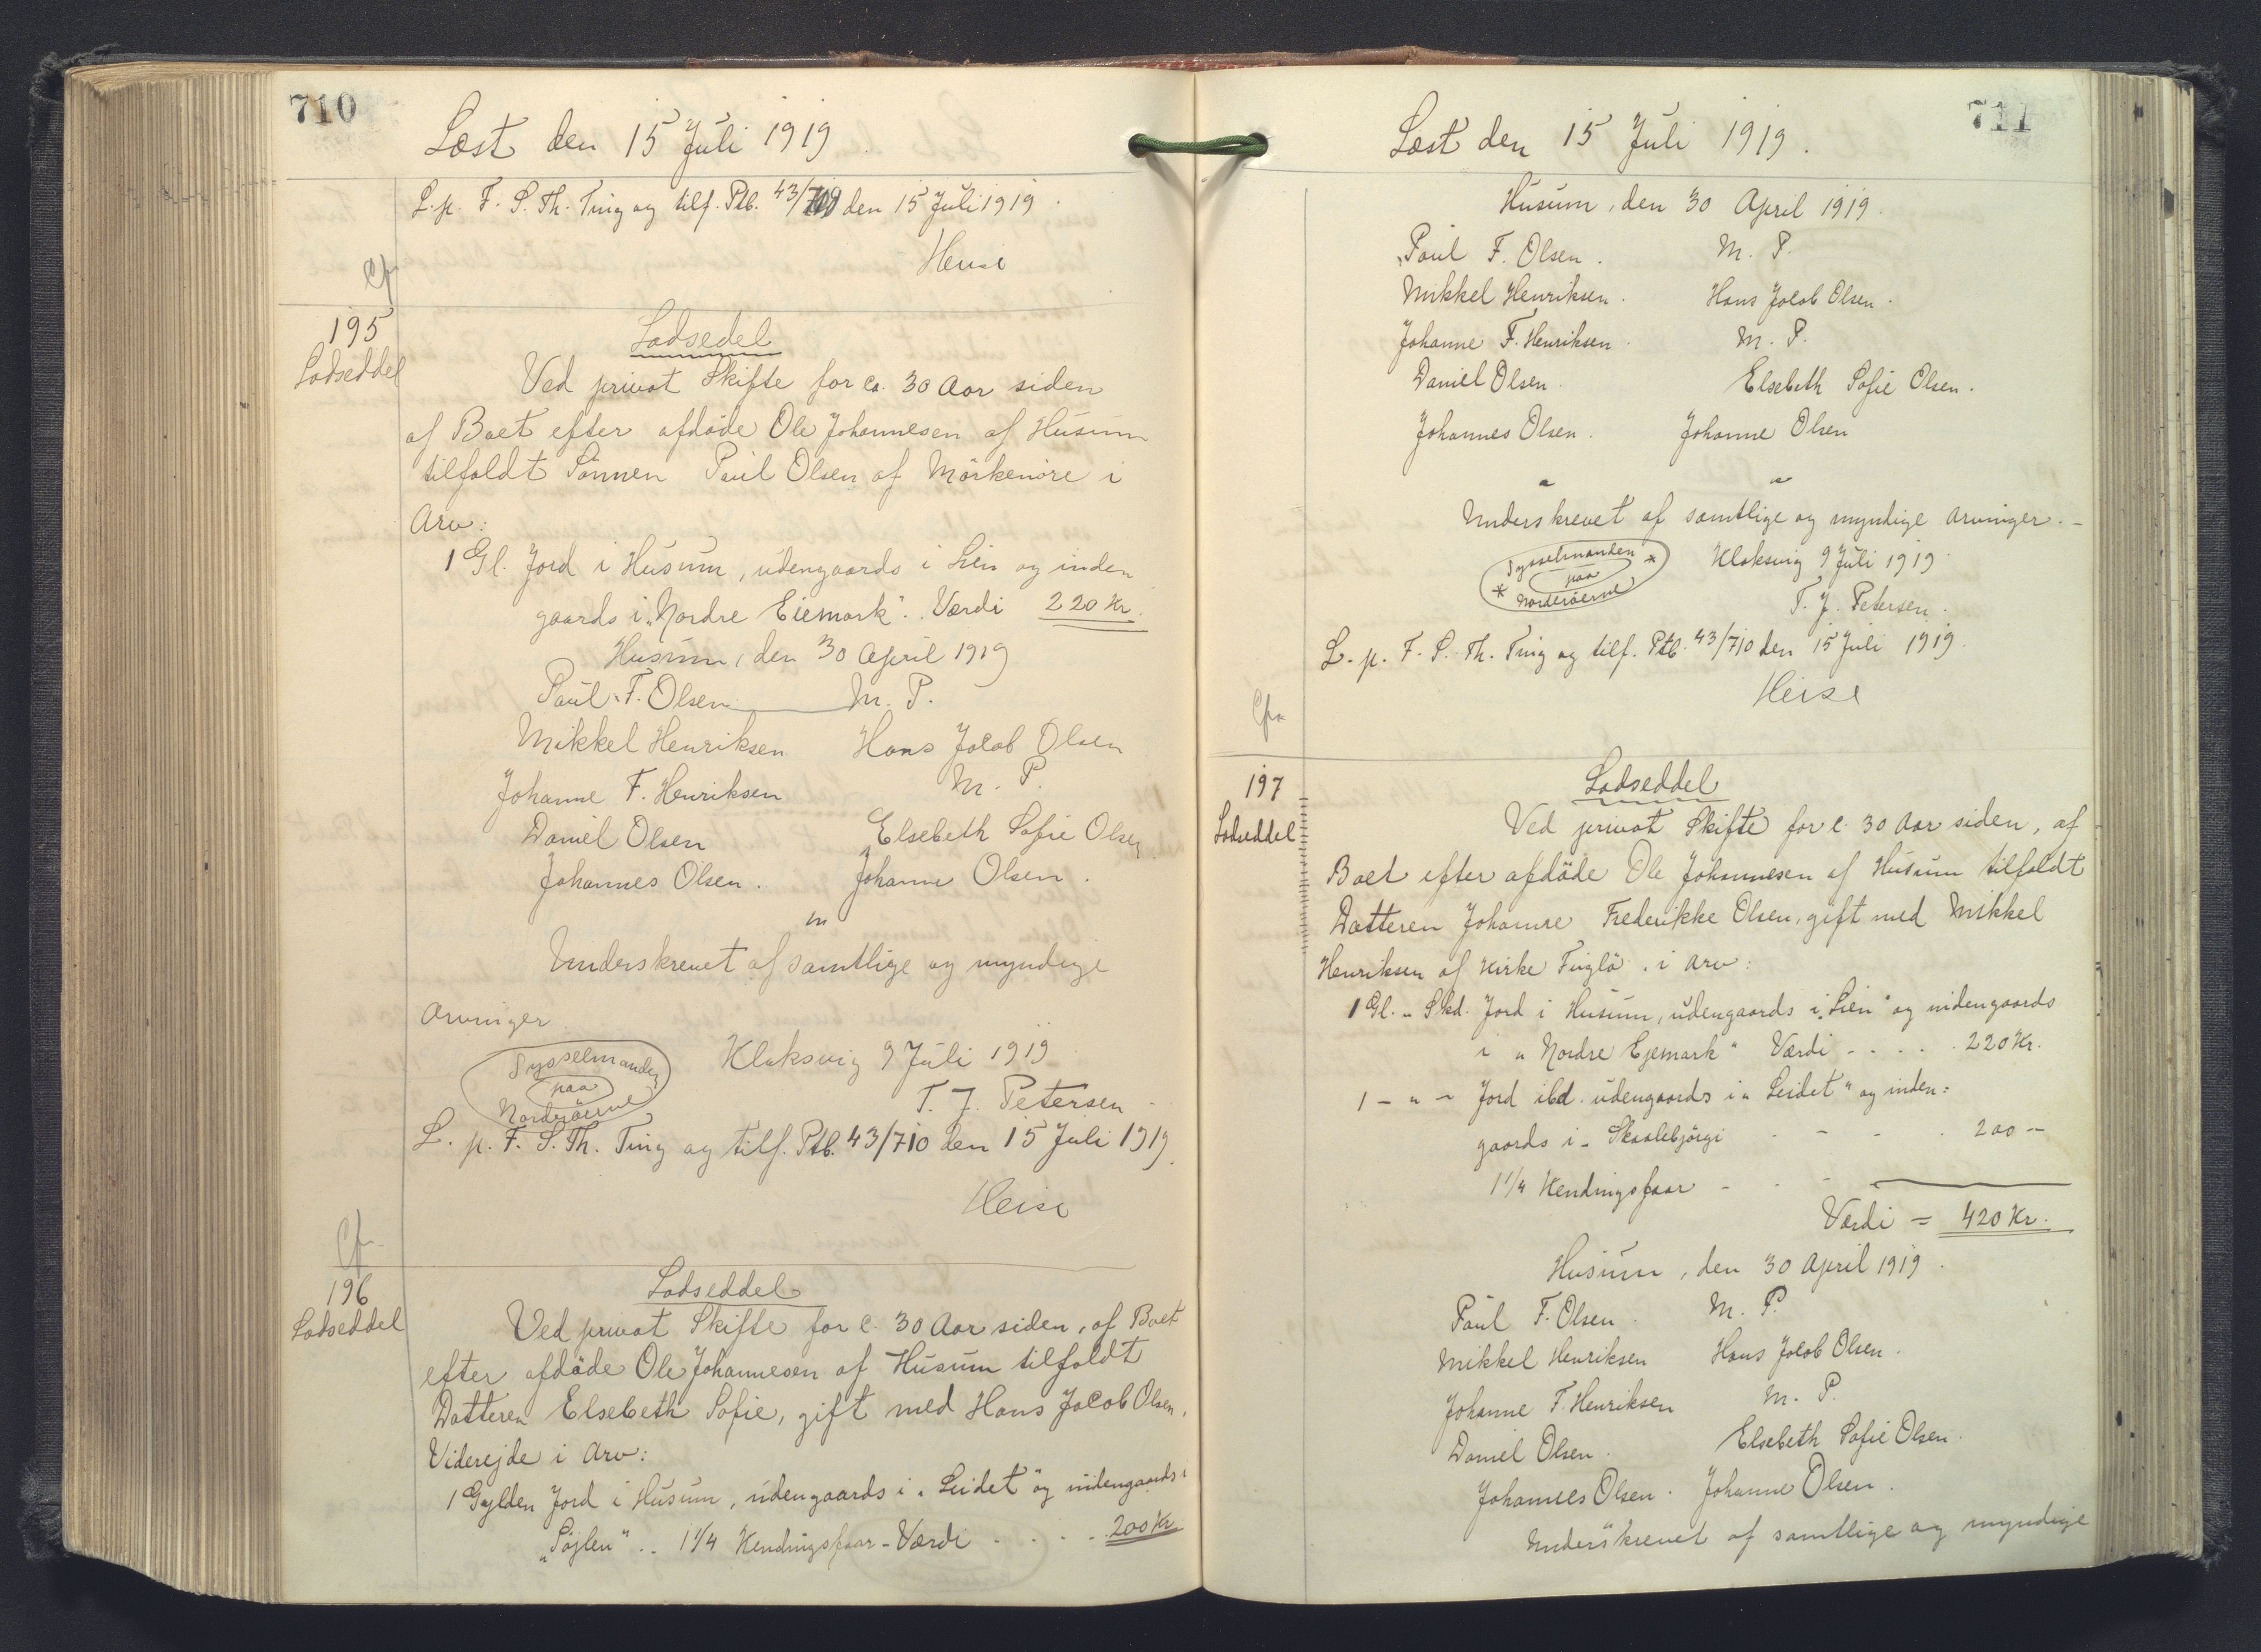 710
Læst den 15 Juli 1919
L. p. F. S. Th. Ting og tilf. Ptb. 43/ den 15 Juli 1919.
Heise
Cfr
195
Lodseddel
Lodsedel
Ved privat Skifte for ca. 30 Aar siden
af Boet efter afdøde Ole Johannesen af Husum
tilfaldt Sønnen Paul Olsen af Mörkenöre i
Arv:
1 Gl. Jord i Husum, udengaards i Lien og inden
gaards i "Nordre Eiemark". Værdi 220 Kr.
Husum, den 30 April 1919
Paul F. Olsen M. P.
Mikkel Henriksen Hans Jacob Olsen
Johanne F. Henriksen M. P.
Daniel Olsen Elsebeth Sofie Olsen
Johannes Olsen. Johanne Olsen.
Underskrevet af samtlige og myndige
Arvinger.
Sysselmanden
paa
Norderöerne
Klaksvig 9 Juli 1919
T. J. Petersen
L. p. F. S. Th. Ting og tilf. Ptb. 43/710 den 15 Juli 1919.
Heise
Cfr
196
Lodseddel
Lodseddel
Ved privat Skifte for c. 30 Aar siden, af Boet
efter afdøde Ole Johannesen af Husum tilfaldt
Datteren Elsebeth Sofie, gift med Hans Jacob Olsen,
Viderejde i Arv:
1 Gylden Jord i Husum, udengaards i "Leidet" og indengaards i
"Söjlen" .. 1 1/4 Kendingsfaar - Værdi . . . . 200 Kr.
711
Læst den 15 Juli 1919.
Husum, den 30 April 1919.
Paul F. Olsen. M. P.
Mikkel Henriksen. Hans Jacob Olsen.
Johanne F. Henriksen. M. P.
Daniel Olsen. Elsebeth Sofie Olsen.
Johannes Olsen. Johanne Olsen
Underskrevet af samtlige og myndige Arvinger. -
* Sysselmanden *
paa
Norderöerne
Klaksvig 9 Juli 1919.
T. J. Petersen.
L. p. F. S. Th. Ting og tilf. Ptb. 43/710 den 15 Juli 1919.
Heise
Cfr
197
Lodseddel
Lodseddel
Ved privat Skifte for c. 30 Aar siden, af
Boet efter afdøde Ole Johannesen af Husum tilfaldt
Datteren Johanne Frederikke Olsen, gift med Mikkel
Henriksen af Kirke Fuglö. i Arv:
1 Gl. " Skd. Jord i Husum, udengaards i "Lien" og indengaards
i "Nordre Ejemark" Værdi - . . . . 220 Kr.
1 - " - Jord ibd. udengaards i "Leidet" og inden=
gaards i - Skaalebjörgi . - - . 200 -
1 1/4 Kendingsfaar - . -
Værdi = 420 Kr.
Husum, den 30 April 1919.
Paul F. Olsen. M. P.
Mikkel Henriksen Hans Jacob Olsen.
Johanne F. Henriksen M. P.
Daniel Olsen. Elsebeth Sofie Olsen.
Johannes Olsen. Johanne Olsen.
Underskrevet af samtlige og myndige